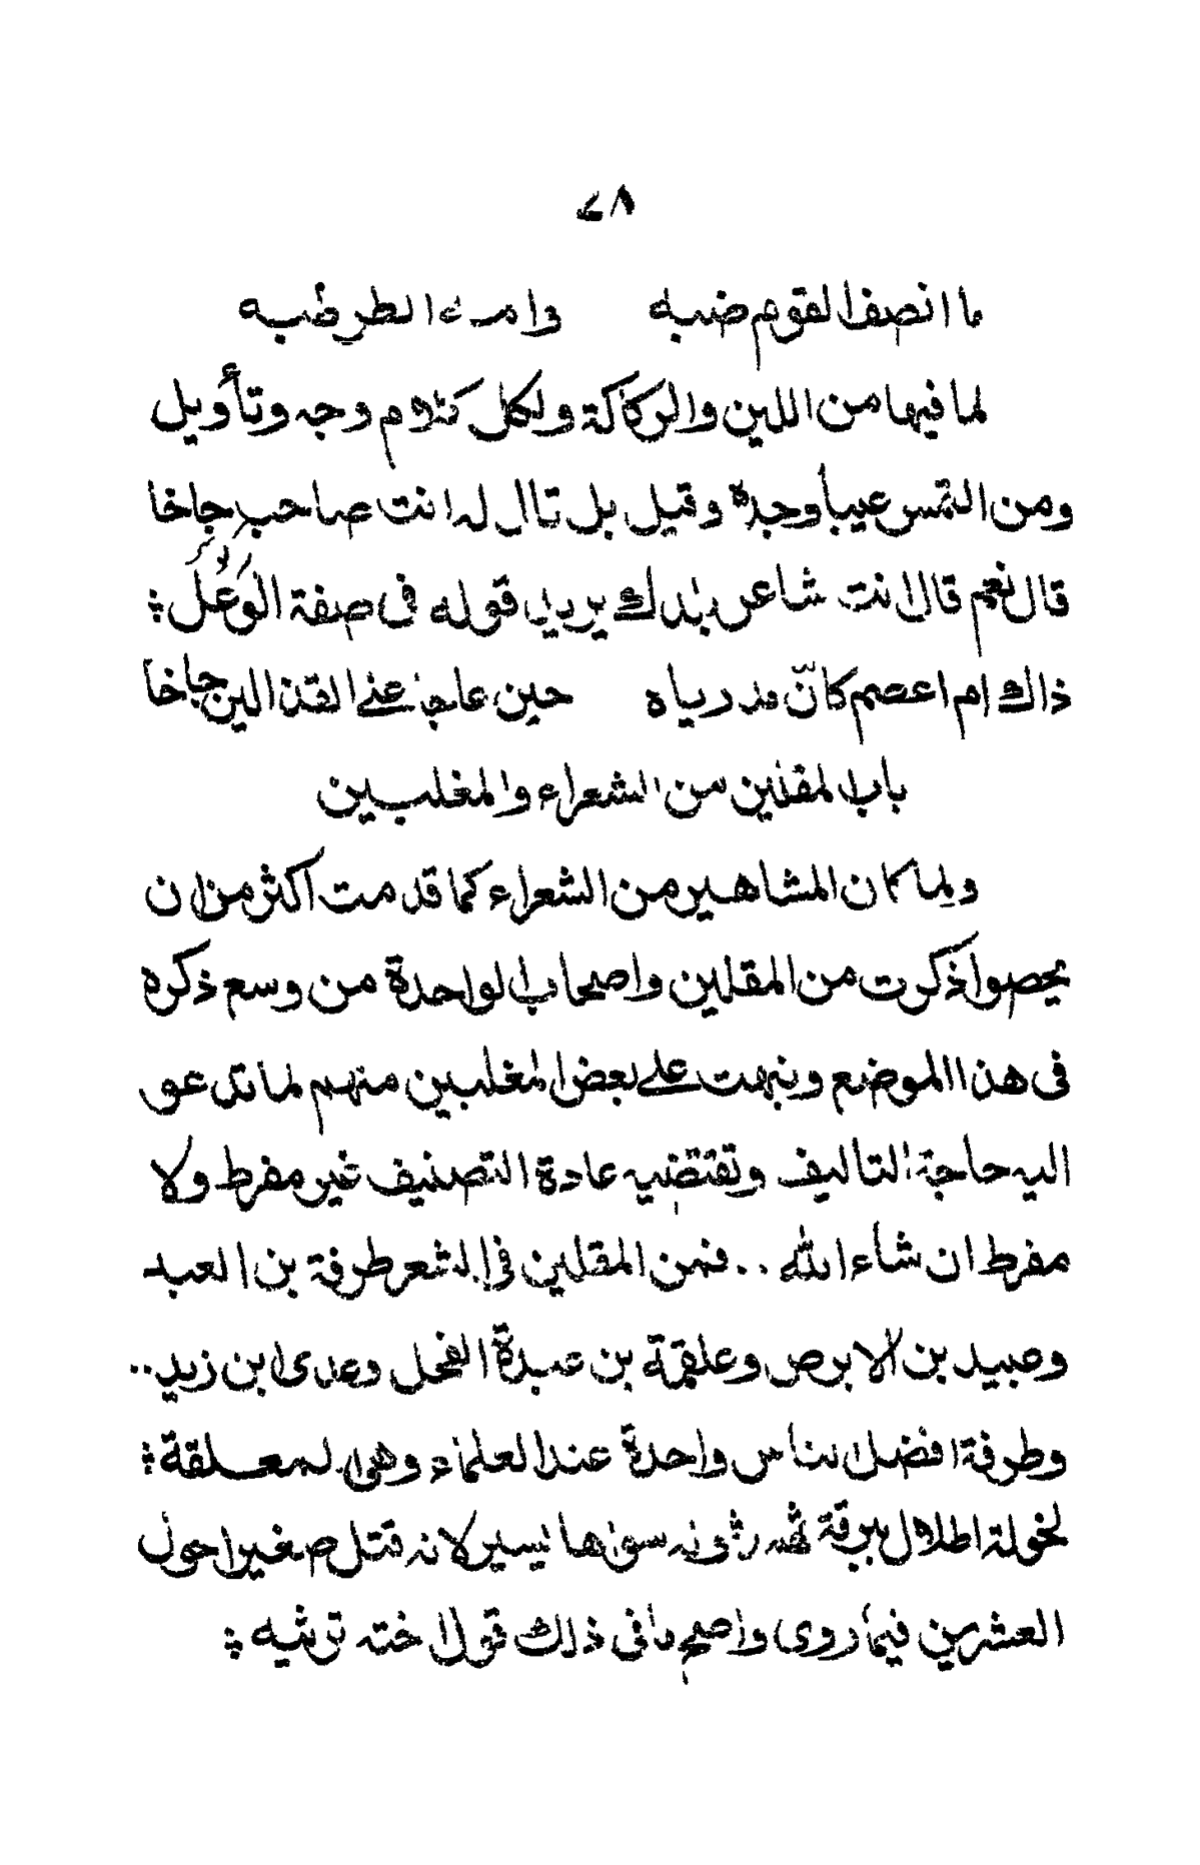 ٧٨
ما انصف القوم ضبه وامه الطرطبه
لما فيها من اللين والركاكة ولكل كلام وجه وتأويل
ومن التمس عيباً وجده وقيل بل قال له انت صاحب جاخا
قال نعم قال انت شاعر بلدك يريد قوله فى صفة الوَعُل :
ذاك ام اعصم كانّ مدرياه حين عاجا على القذالين جاخا
باب المقلين من الشعراء والمغلبين
ولما كان المشاهير من الشعراء كما قدمت اكثر من ان
يحصوا ذكرت من المقلين واصحاب الواحدة من وسع ذكره
فى هذا الموضع ونبهت على بعض المغلبين منهم لما تدعو
اليه حاجة التاليف وتقتضيه عادة التصنيف غير مفرط ولا
مفرط ان شاء الله .. فمن المقلين فى الشعر طرفة بن العبد
وعبيد بن الابرص وعلقمة بن عبدة الفحل وعدى ابن زيد ..
وطرفة افضل الناس واحدة عند العلماء وهى المعلقة :
لخولة اطلال ببرقة ثهمد وله سواها يسير لانه قتل صغيرا حول
العشرين فيما روى واصح ما فى ذلك قول اخته ترثيه :